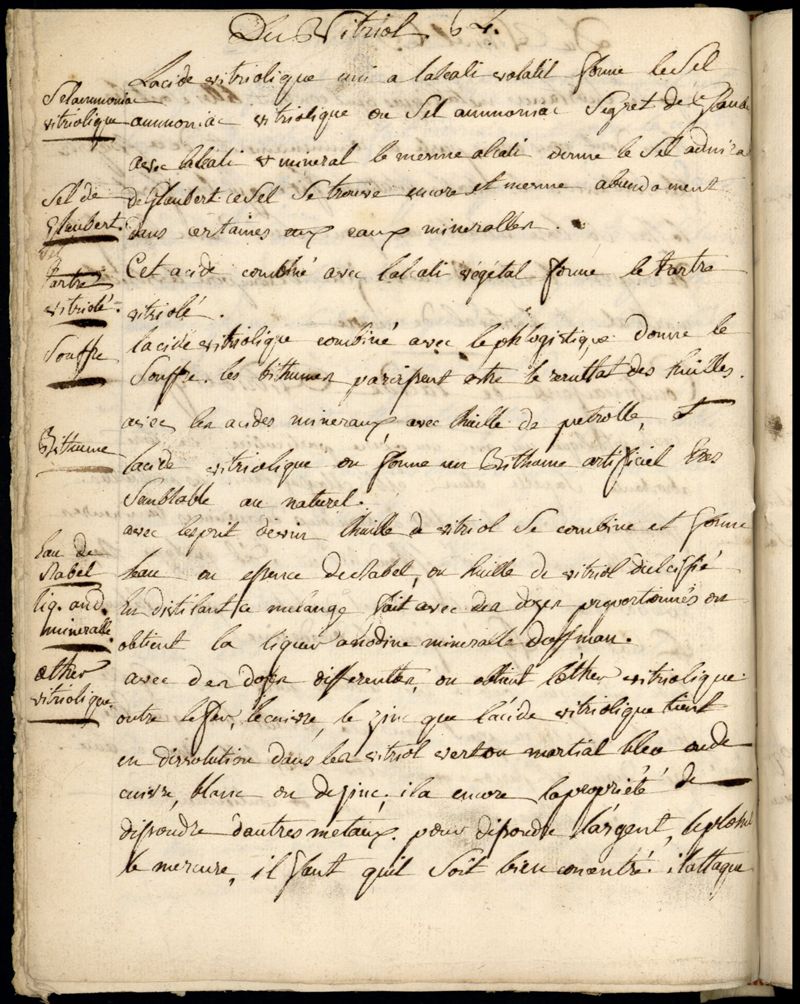 Du Vitriol. 64.
Lacide vitriolique uni a lalcali volatil forme le Sel
Sel ammoniac
vitriolique
ammoniac vitriolique ou Sel ammoniac Segret de Glaube
avec lalcali mineral le mesme alcali donne le Sel admira
Sel de
Glaubert.
de Glaubert ce Sel Se trouve encore et mesme abondament
dans certaines eaux mineralles.
tartre
vitriolé.
Cet acide combiné avec lalcali végétal forme le tartre
vitriolé.
Souffre
lacide vitriolique combiné avec le phlogistique donne le
Souffre. les bithumes paroissent estre le resultat des huilles.
avec les acides mineraux avec lhuille de petrolle, et
Bithume
lacide vitriolique on forme un Bithume artificiel tres
Semblable au naturel.
avec lesprit de vin lhuille de vitriol Se combine et forme
Eau de
Rabel
leau ou essence de Rabel, ou huille de vitriol dulcifié
liq. anod.
mineralle.
En distilant ce melange fait avec des doses proportionnés on
obtient la liqueur anodine mineralle doffman.
æther
vitriolique.
avec des doses differentes, on obtient læther vitriolique.
outre le fer, le cuivre, le zinc que lácide vitriolique tient
en dissolution dans les vitriol vert ou martial bleu ou de
cuivre, blanc ou de zinc, il a encore la propriété de
dissoudre dautres métaux. pour dissoudre lárgent, le plomb
le mercure, il faut quil Soit bien concentré. il attaque